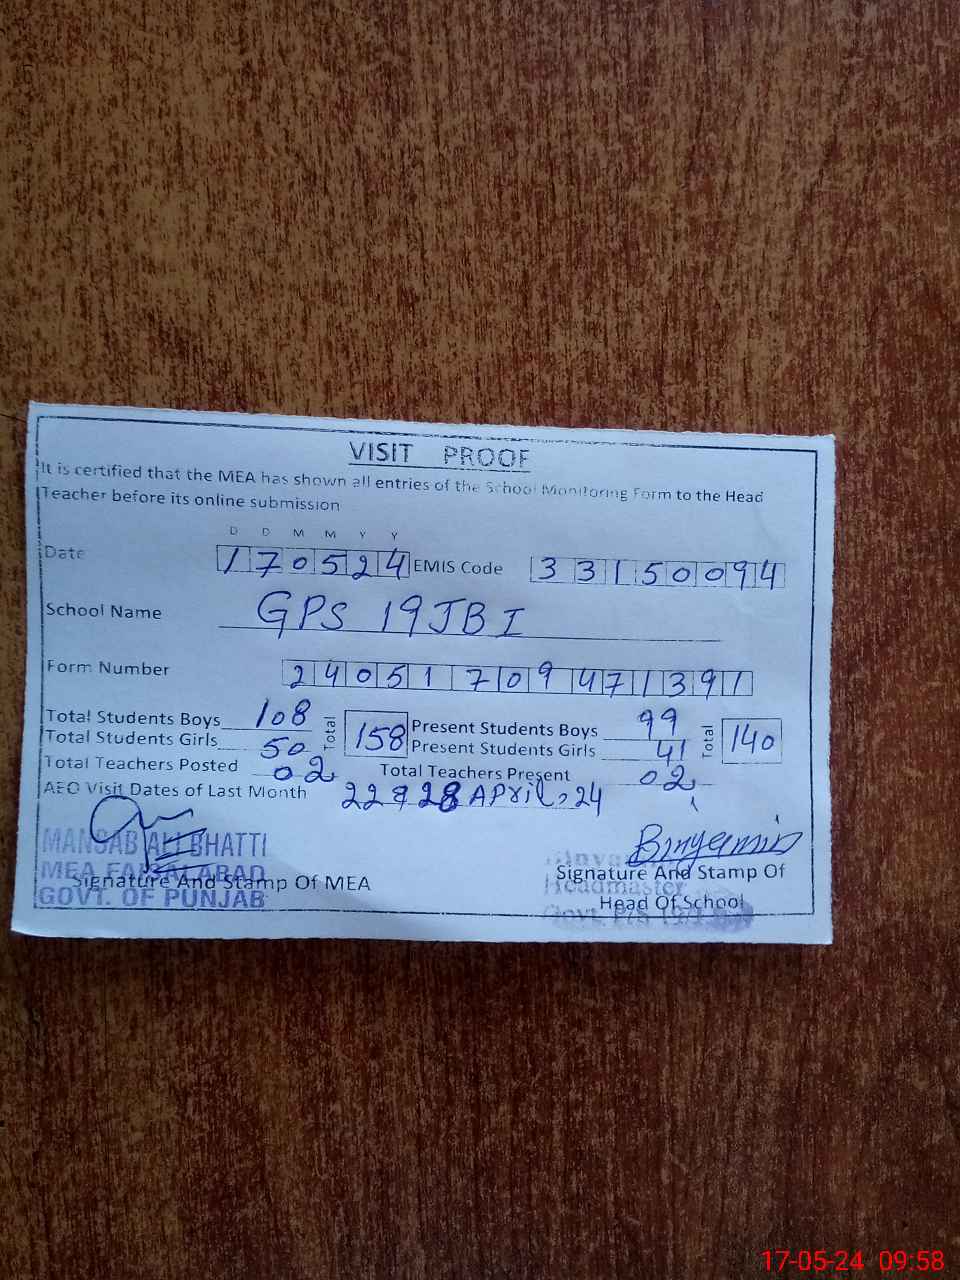 VISIT PROOF
It is certified that the MEA has shown all entries of the School Monitoring Form to the Head
Teacher before its online submission
D D M M Y Y
Date 170524 EMIS Code 33150094
School Name GPS 19JBI
Form Number 24051709471391
Total Students Boys 108 Total 158 Present Students Boys 99 Total 140
Total Students Girls 50 Present Students Girls 41
Total Teachers Posted 02 Total Teachers Present 02
AEO Visit Dates of Last Month 22 & 28 April, 24
MANSAB ALI BHATTI Binyamin
MEA FAISALABAD Signature And Stamp Of
Signature And Stamp Of MEA Headmaster
GOVT. OF PUNJAB Head Of School
17-05-24 09:58